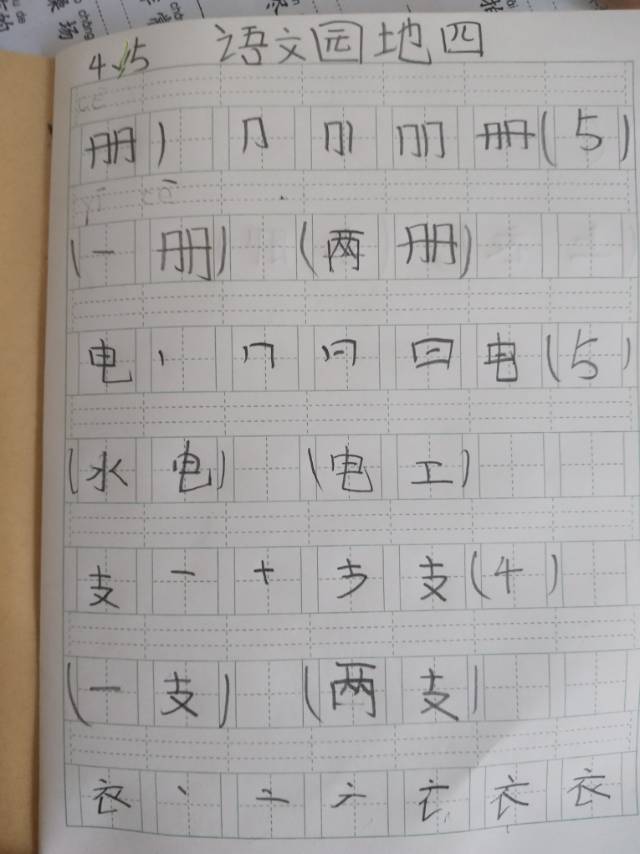 4、15 语文园地四
cè
册 丿 ⺆ 刂 册 册 (5)
yī cè
(一册) (两册)
电 丨 冂 日 日 电 (5)
(水电) (电工)
支 一 十 支 (4)
(一支) (两支)
衣 丶 亠 衣 衣